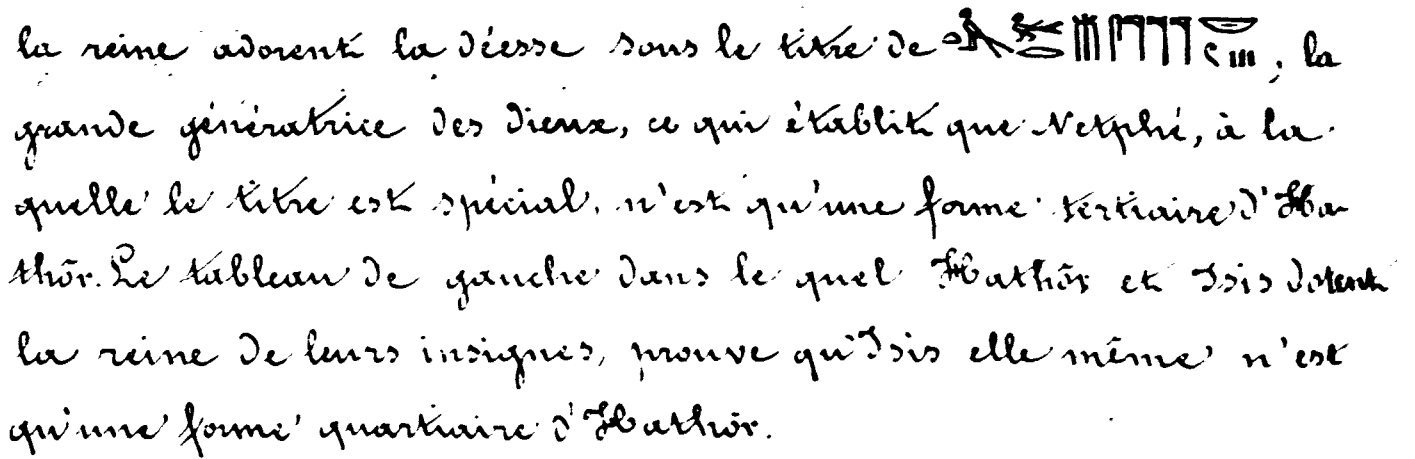 la reine adorent la déesse sous le titre de ; la
grande génératrice des dieux, ce qui établit que Netphé, à la
quelle le titre est spécial, n'est qu'une forme tertiaire d'Ha-
thôr. Le tableau de gauche dans le quel Hathôr et Isis dotent
la reine de leurs insignes, prouve qu'Isis elle même n'est
qu'une forme quartiaire d'Hathôr.